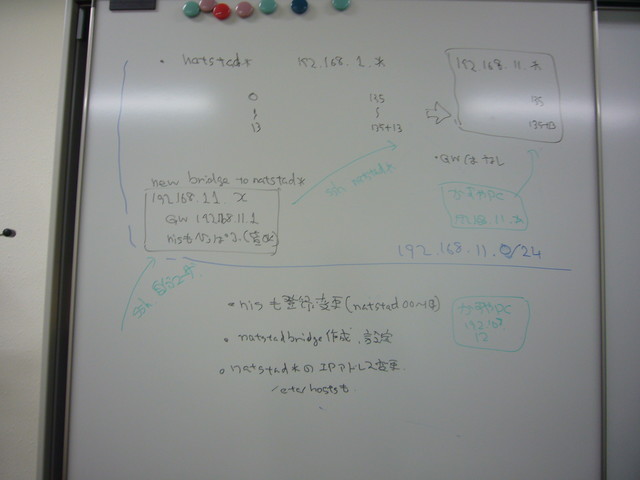 ・natstad* 192.168.1.*
0 135
〜 〜
13 135+13
192.168.11.*
135
135+13
・GWはなし
new bridge to natstad*
192.168.11.x
GW 192.168.11.1
nisも
ssh natstad*
PC
192.168.11.*
192.168.11.0/24
ssh
・nisも登録変更(natstad00〜13)
・natstadbridge作成、設定
・natstad*のIPアドレス変更.
/etc/hostsも
PC
192.168.